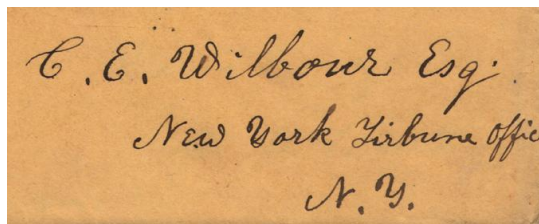 C. E. Wilbour Esq.
New York Tirbune Offic
N. Y.